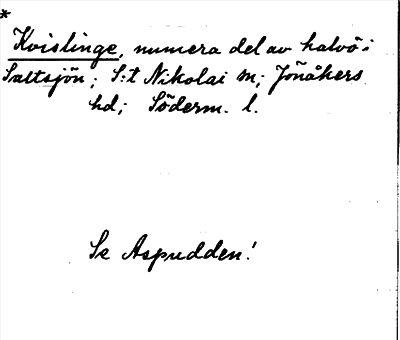 *
Kvislinge, numera del av halvö i
Saltsjön; S:t Nikolai sn; Jönåkers
hd; Söderm. l.
Se Aspudden!